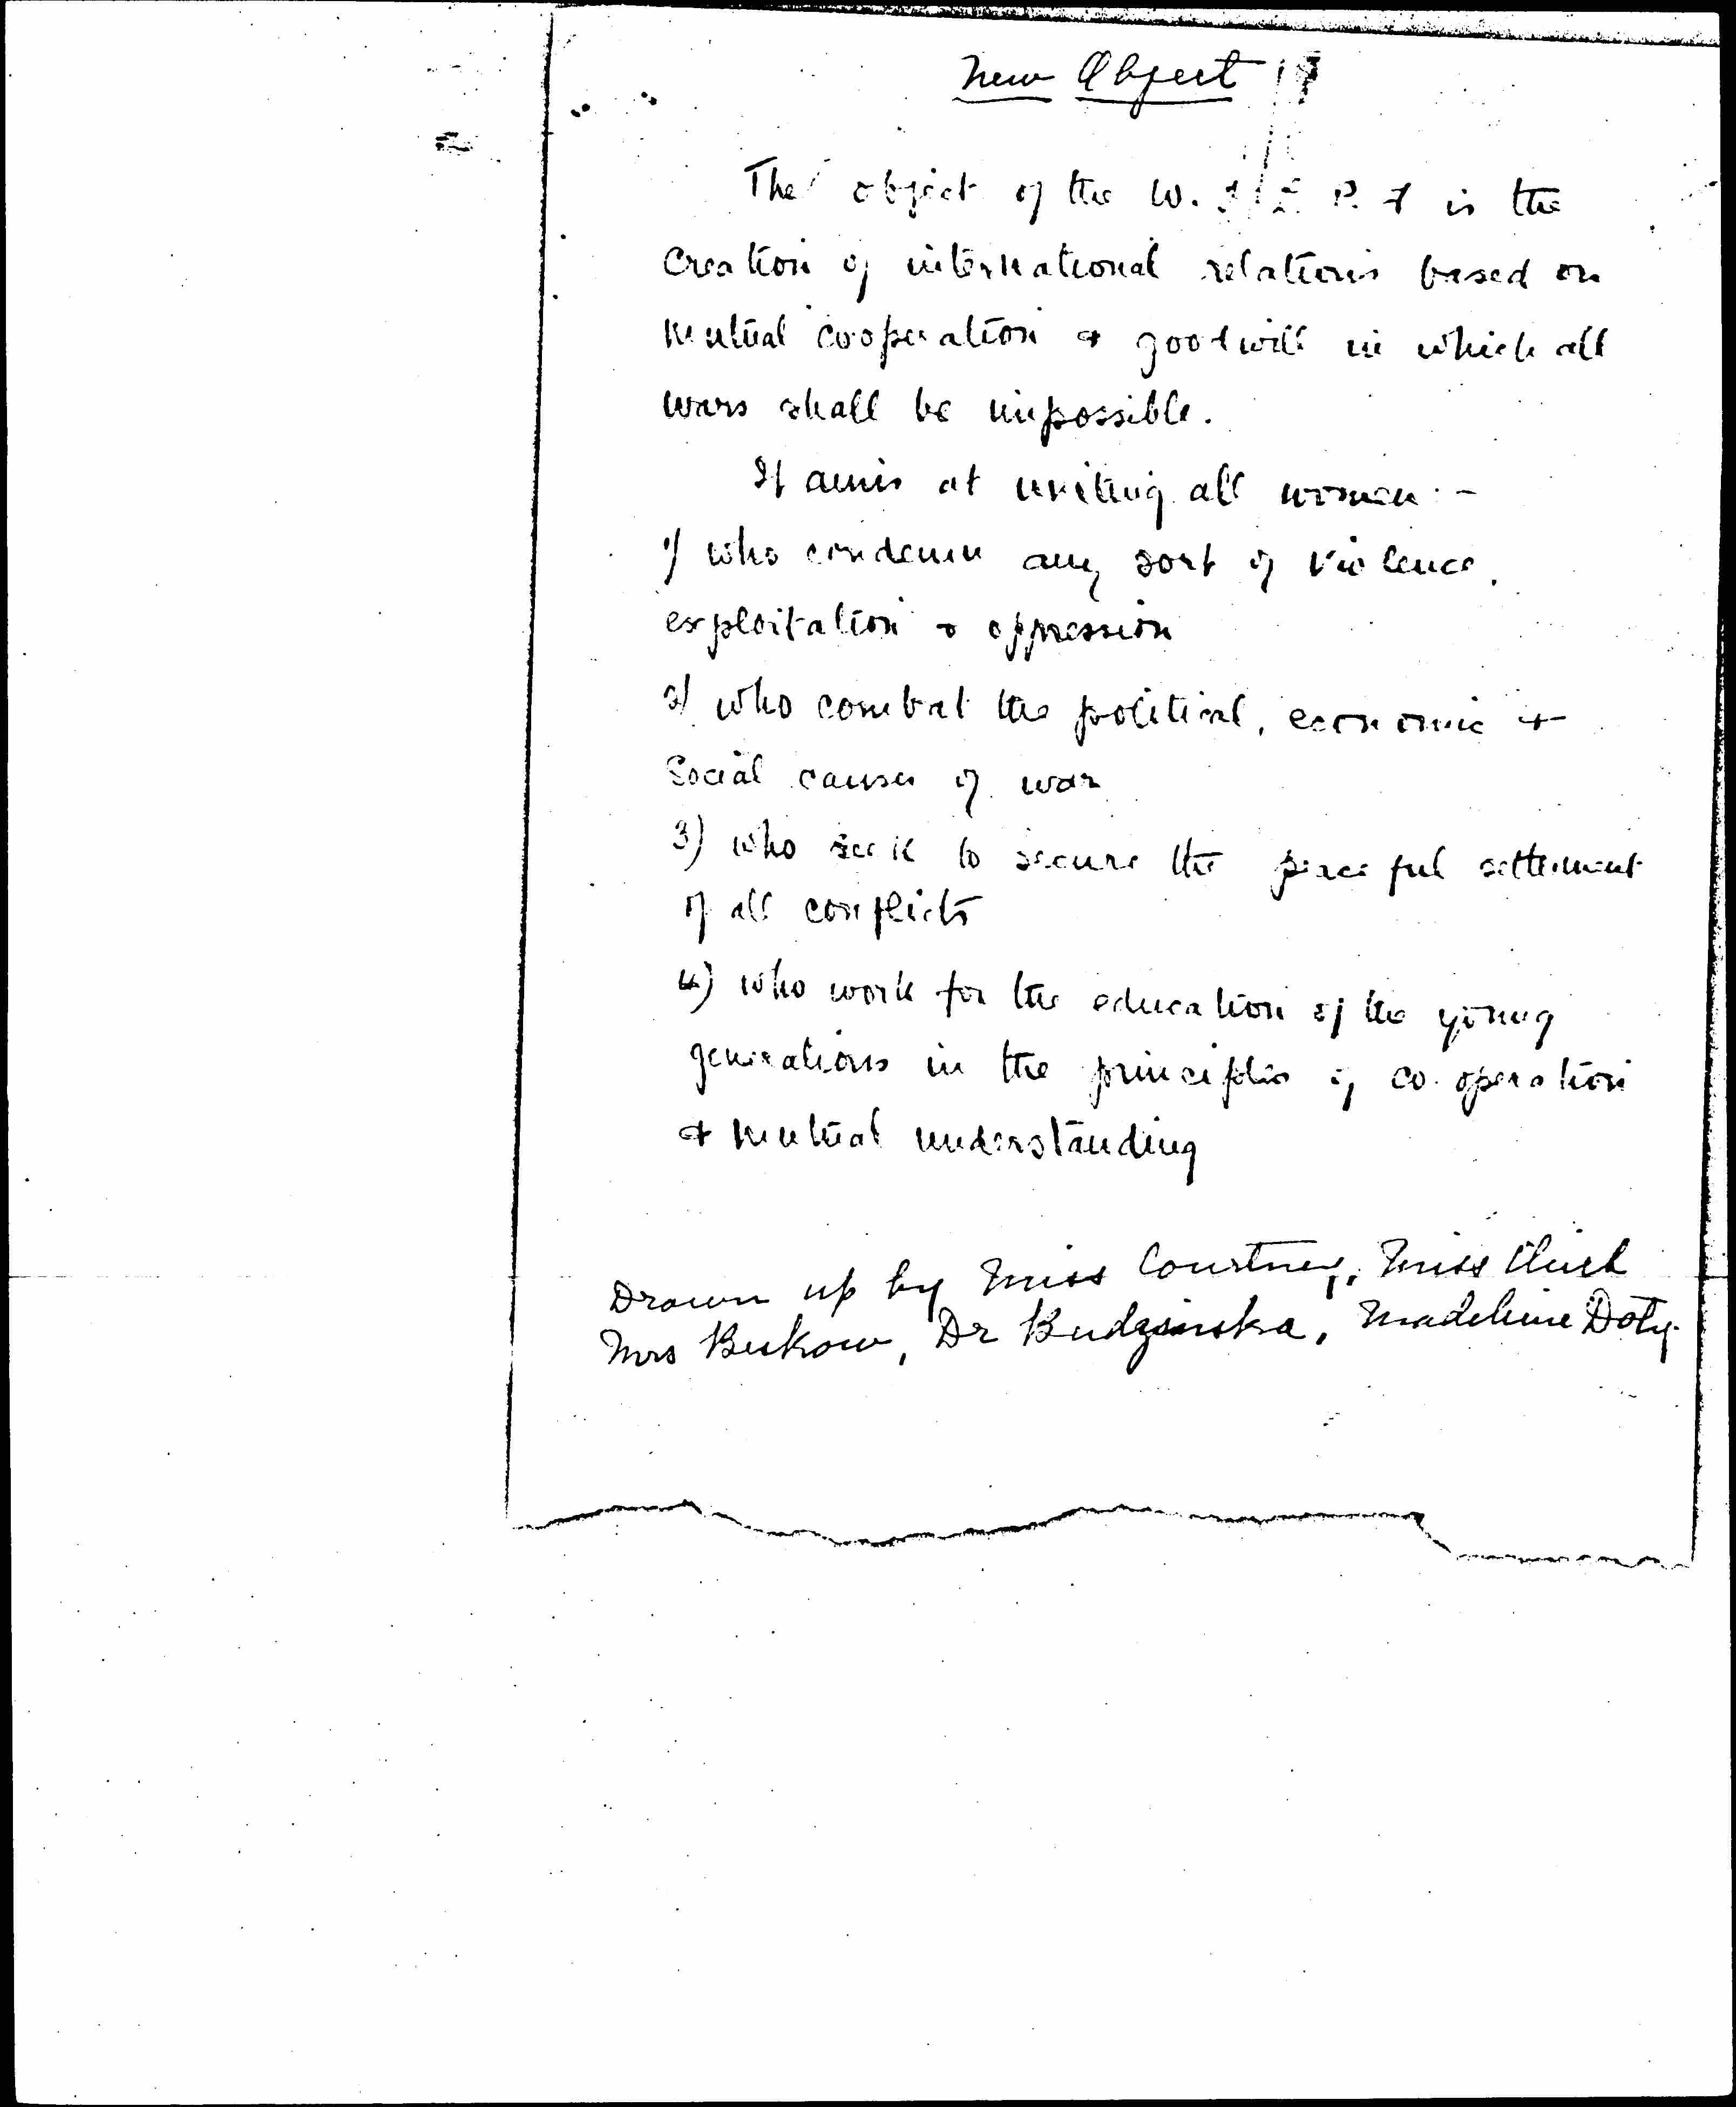 New Object
The object of the W. I. L. P. F is the
creation of international relations based on
mutual cooperation & goodwill in which all
wars shall be impossible.
It aims at uniting all women :-
1) who condemn any sort of violence,
exploitation & oppression
2) who combat the political, economic &
Social causes of war
3) who seek to secure the peaceful settlement
of all conflicts
4) who work for the education of the young
generations in the principles of co-operation
& mutual understanding
Drawn up by Miss Courtney, Miss
Mrs Dr Budzinska, Madeleine Doty.